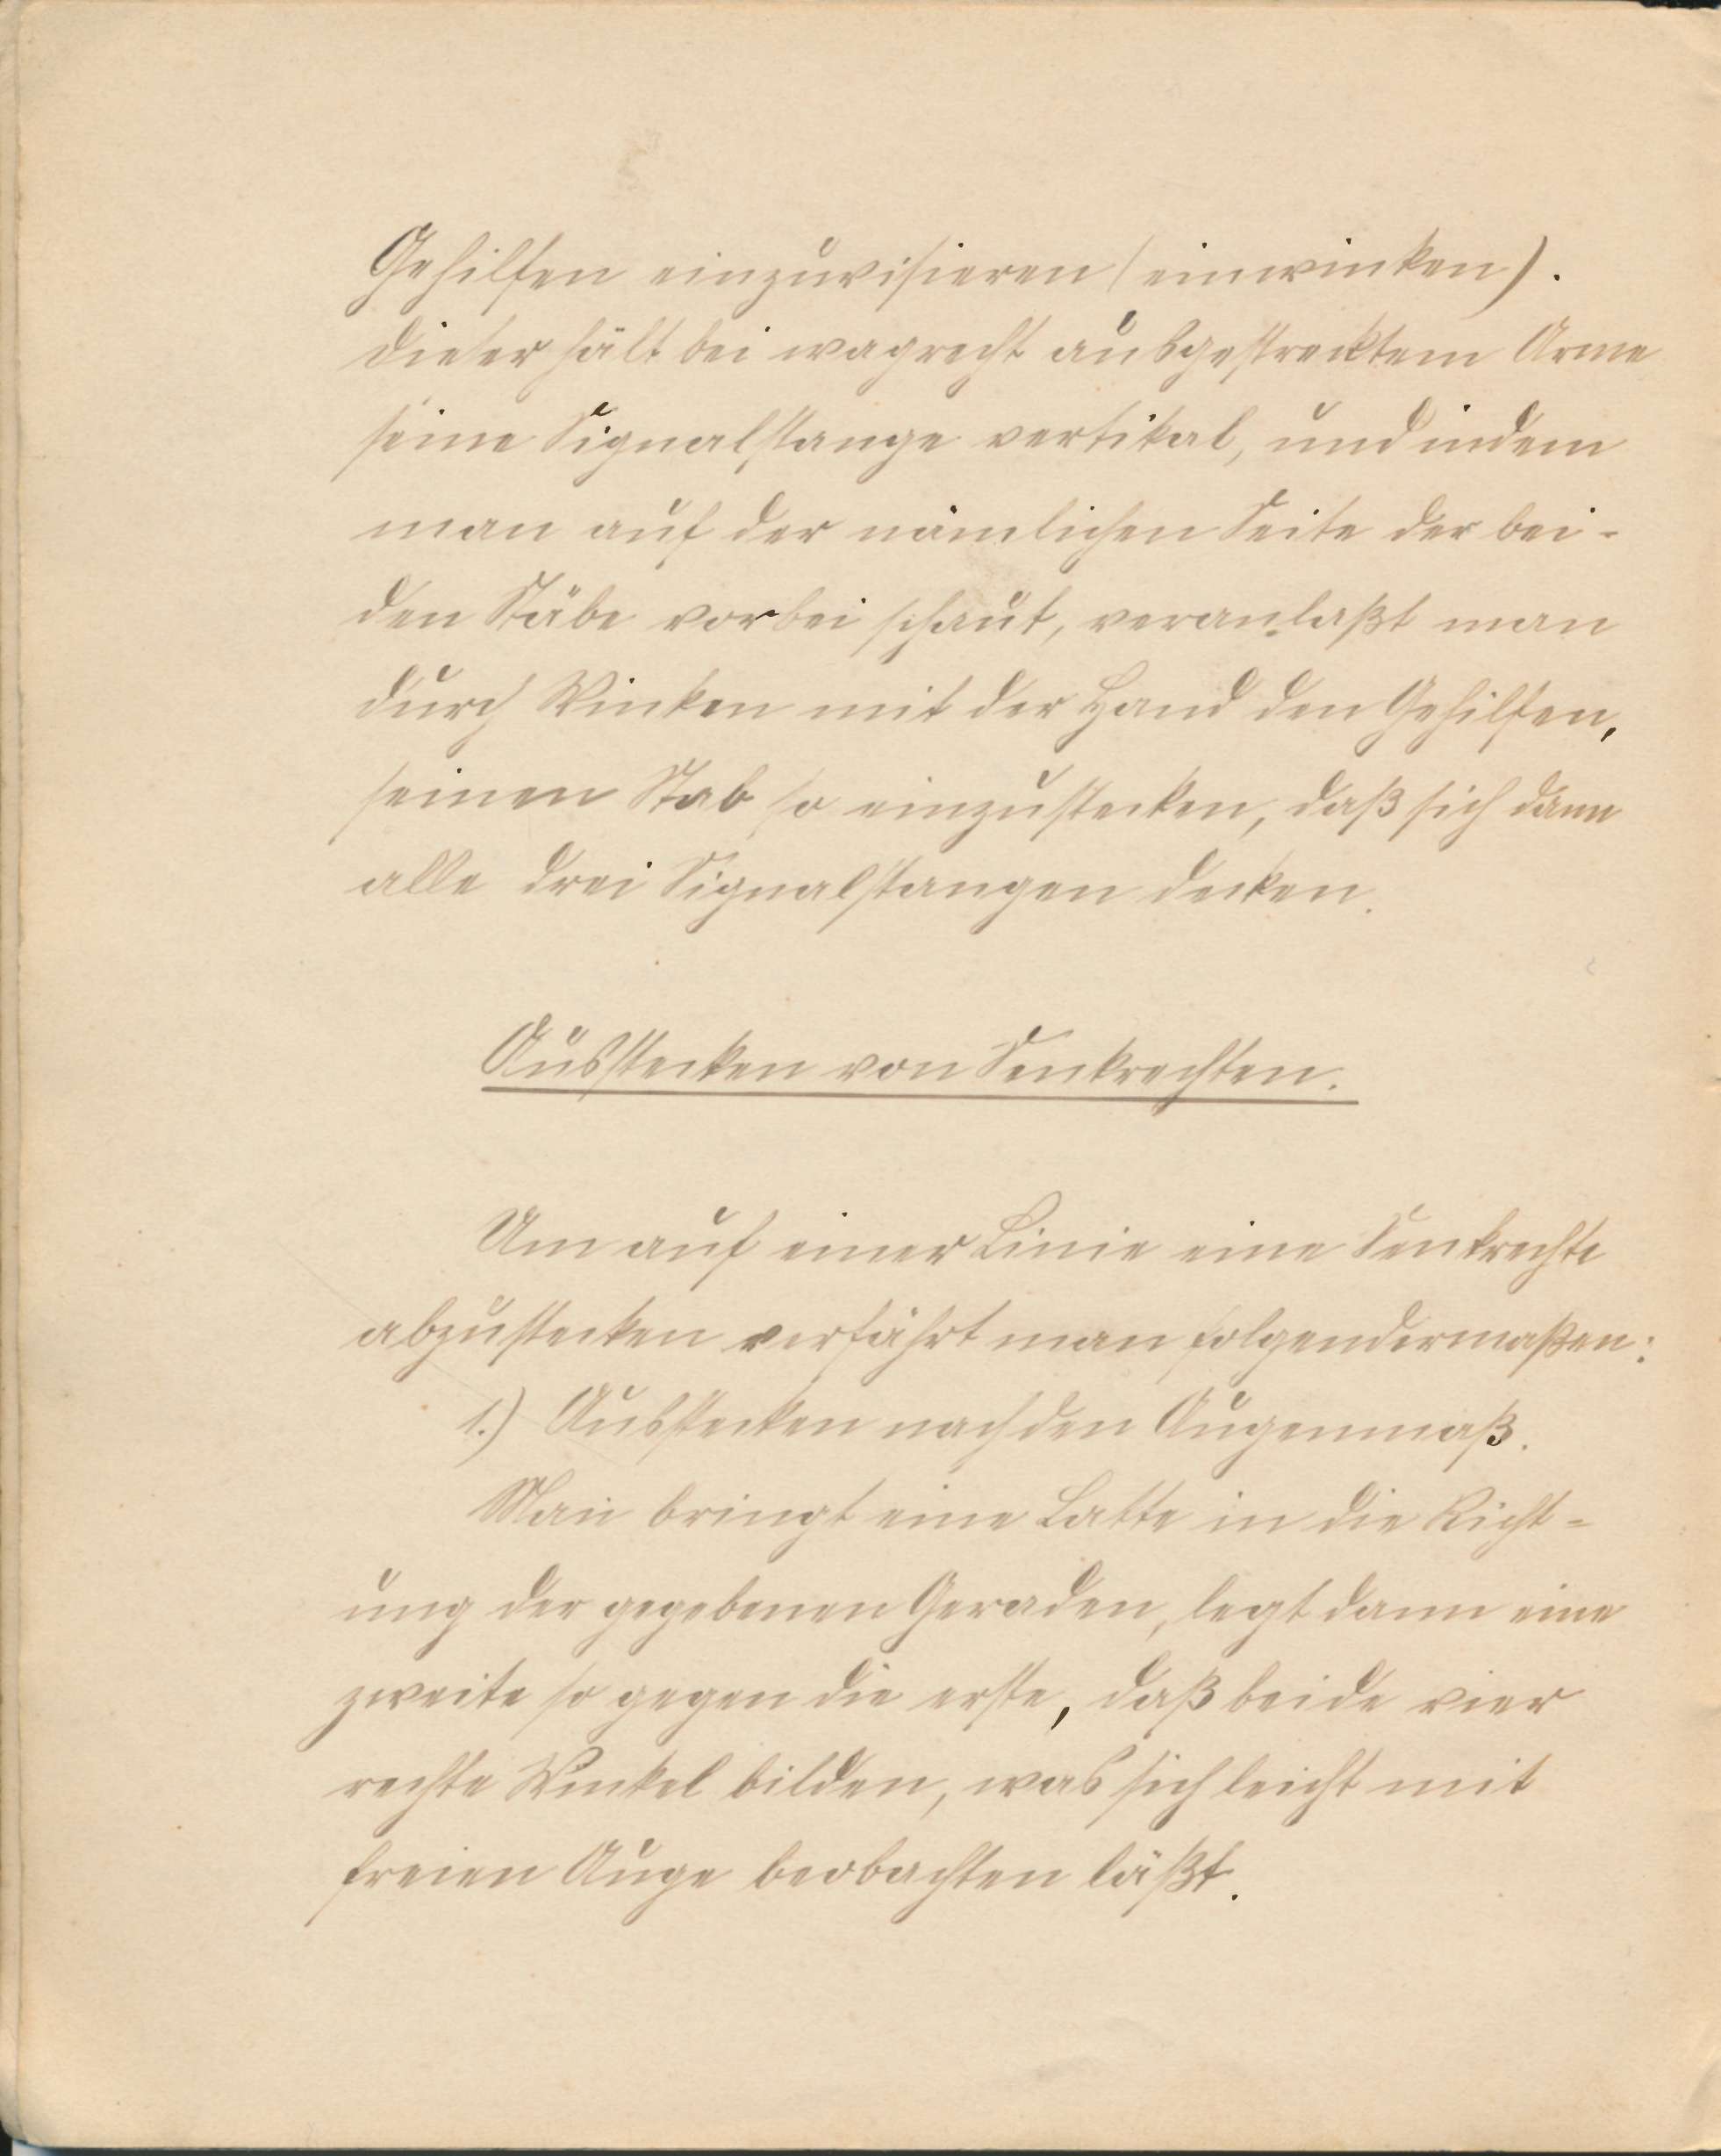 Gehilfen einzuvisieren (einwinken).
Dieser hält bei wagrecht ausgestrecktem Arme
seine Signalstange vertikal, und indem
man auf der nämlichen Seite der bei-
den Stäbe vorbei schaut, veranlaßt man
durch Winken mit der Hand den Gehilfen,
seinen Stab so einzustecken, daß sich dann
alle drei Signalstangen decken.
Ausstecken von Senkrechten.
Um auf einer Linie eine Senkrechte
abzustecken verfährt man folgendermaßen:
1.) Ausstecken nach den Augenmaß.
Man bringt eine Latte in die Richt-
ung der gegebenen Geraden, legt dann eine
zweite so gegen die erste, daß beide vier
rechte Winkel bilden, was sich leicht mit
freien Auge beobachten läßt.